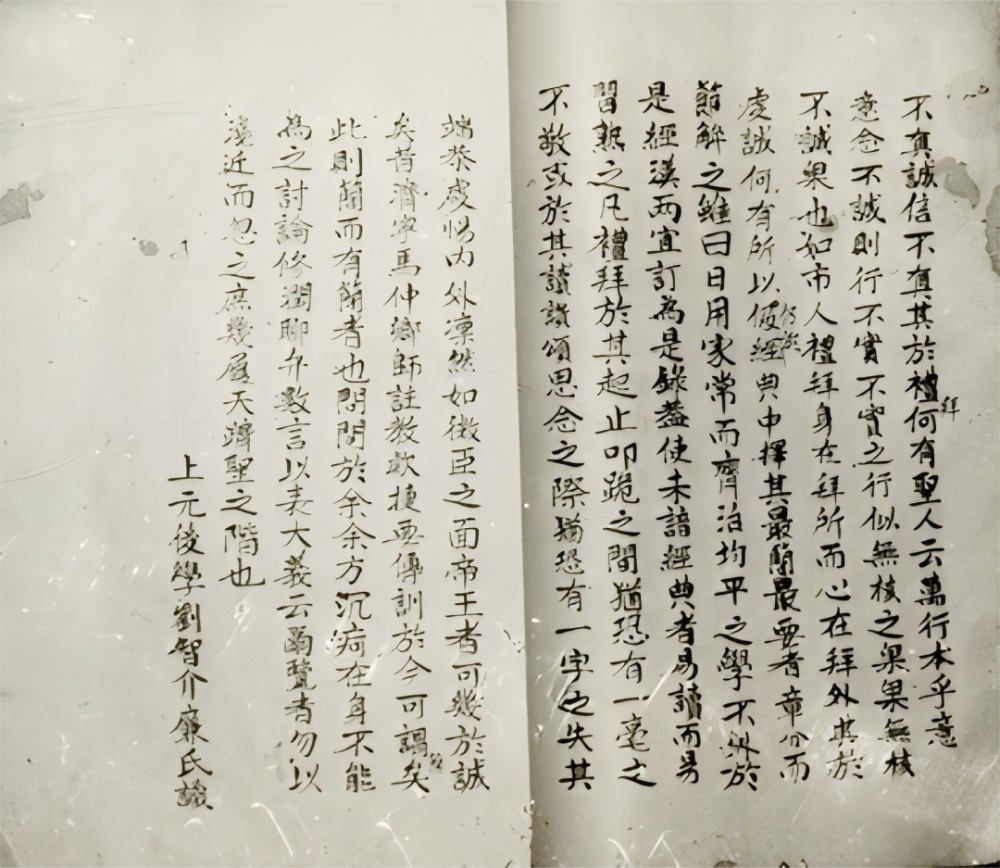 不真誠信不真其於禮拜何有聖人云萬行本乎意
意念不誠則行不實不實之行似無核之果果無核
不誠果也如市人禮拜身在拜所而心在拜外其於
虔誠何有所以復經典中擇其最簡最要者章分而
節解之雖曰日用家常而齊治均平之學不外於
是經漢兩宜訂為是錄蓋使未諳經典者易讀而易
習熟之凡禮拜於其起止叩跪之間猶恐有一毫之
不敬或於其讀讚頌思念之際猶恐有一字之失其
端恭虔惕內外凜然如微臣之面帝王者可幾於誠
矣昔濟寧馬仲鄉師註教款捷要傳訓於今可謂矣
此則簡而有簡者也問問於余余方沉疴在身不能
為之討論修潤聊弁數言以表大義云爾覽者勿以
淺近而忽之庶幾屬天躋聖之階也
上元後學劉智介廉氏譔